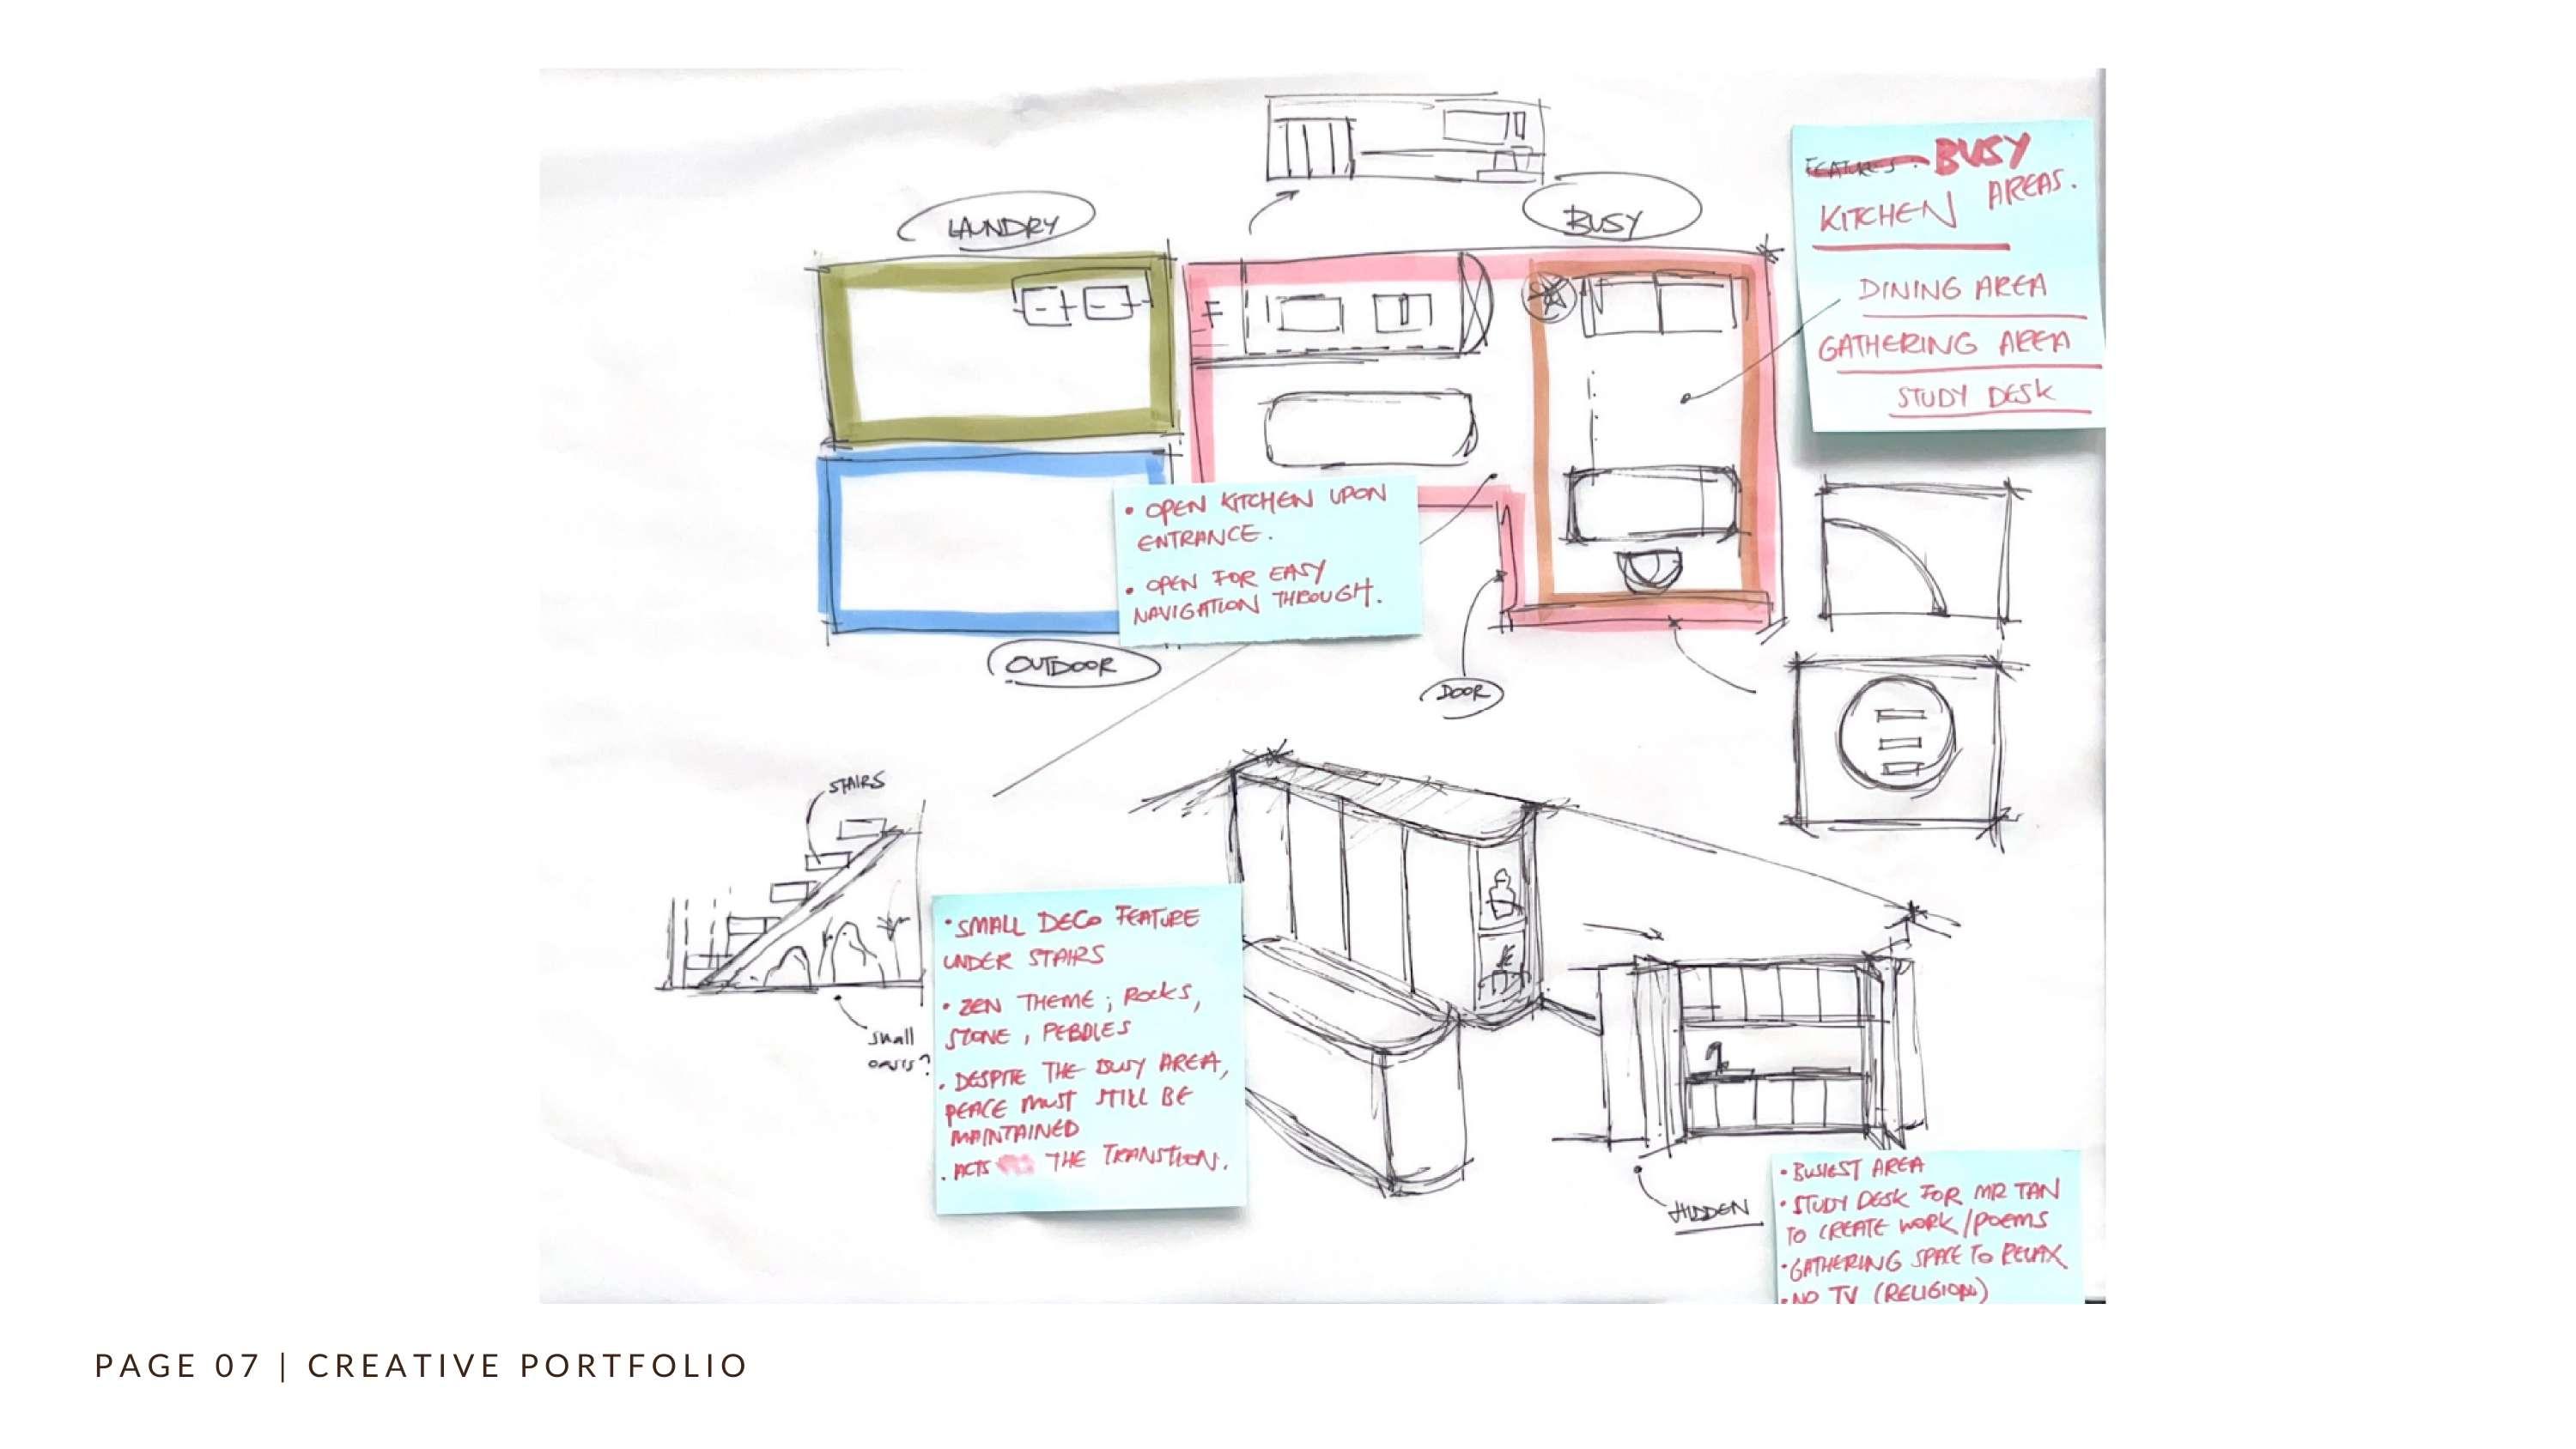 LAUNDRY
BUSY
FEATURES: BUSY
AREAS.
KITCHEN
DINING AREA
GATHERING AREA
STUDY DESK
F
• OPEN KITCHEN UPON
ENTRANCE.
• OPEN FOR EASY
NAVIGATION THROUGH.
OUTDOOR
DOOR
STAIRS
small
oasis?
• SMALL DECO FEATURE
UNDER STAIRS
• ZEN THEME; ROCKS,
STONE, PEBBLES
• DESPITE THE BUSY AREA,
PEACE MUST STILL BE
MAINTAINED
• ACTS THE TRANSTION.
HIDDEN
• BUSIEST AREA
• STUDY DESK FOR MR TAN
TO CREATE WORK/POEMS
• GATHERING SPACE TO RELAX
• NO TV (RELIGION)
PAGE 07 | CREATIVE PORTFOLIO